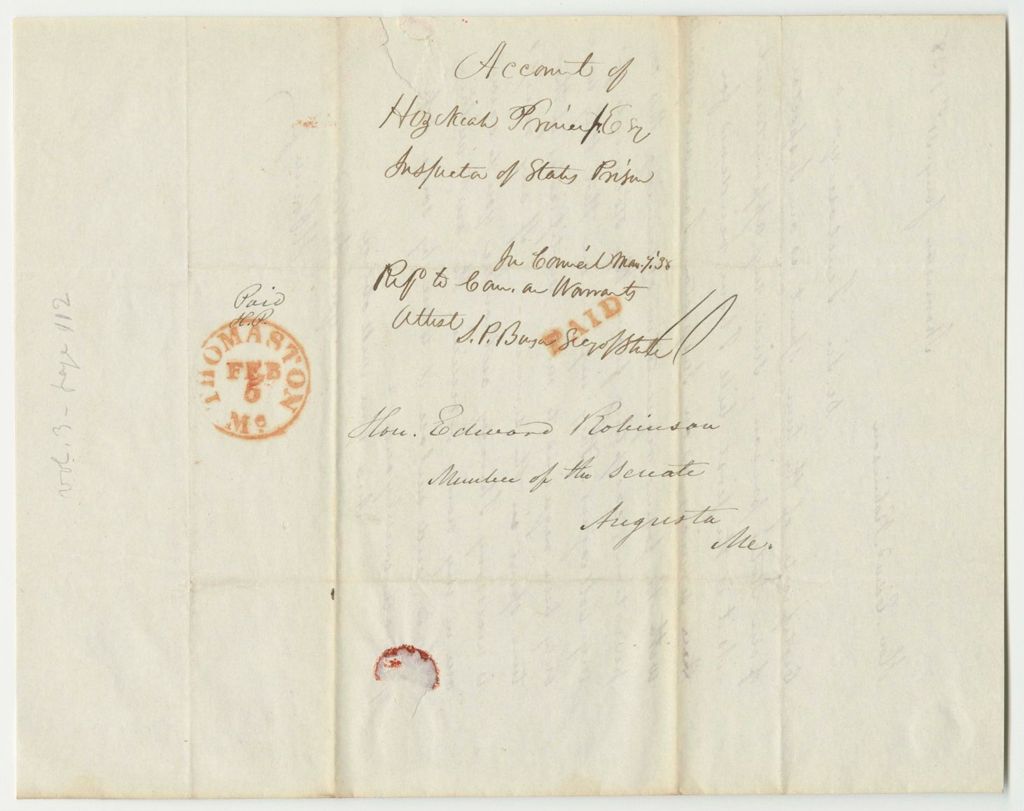 Account of
Hezekiah Prince Esq
Inspector of States Prison
In Council Mar. 7. '38
Refd to Com. on Warrants
Attest
S.P. Benson Secy of State
10
PAID
Paid
H.P.
THOMASTON
FEB
6
Me
Hon. Edward Robinson
Member of the Senate
Augusta
Me.
vol. 3 - page 112